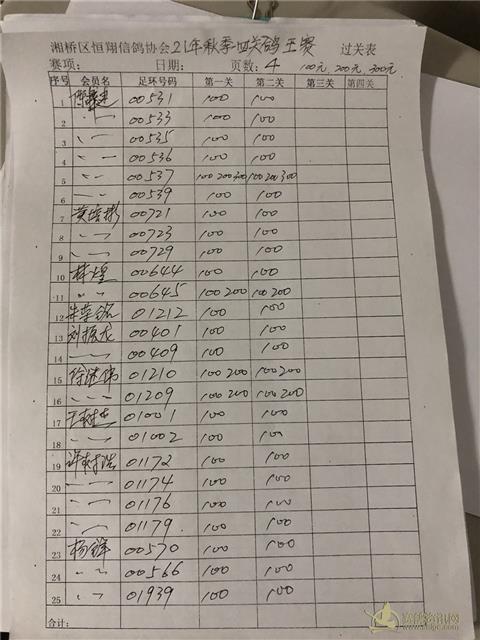 湘桥区恒翔信鸽协会21年秋季四关鸽王赛 过关表
赛项: 日期: 页数: 4 100元,200元,300元
序号 会员名 足环号码 第一关 第二关 第三关 第四关
1 00531 100 100
2 〃 00533 100 100
3 〃 00535 100 100
4 〃 00536 100 100
5 〃 00537 100 200 300 100 200 300
6 〃 00539 100 100
7 黄培彬 00721 100 100
8 〃 00723 100 100
9 〃 00729 100 100
10 林煌 00644 100 100
11 〃 00645 100 200 100 200
12 01212 100 100
13 刘振龙 00401 100 100
14 〃 00409 100 100
15 徐继伟 01210 100 200 100 200
16 〃 01209 100 200 100 200
17 01001 100 100
18 〃 01002 100 100
19 许树浩 01172 100 100
20 〃 01174 100 100
21 〃 01176 100 100
22 〃 01179 100 100
23 杨锋 00570 100 100
24 〃 00566 100 100
25 〃 01939 100 100
合计: